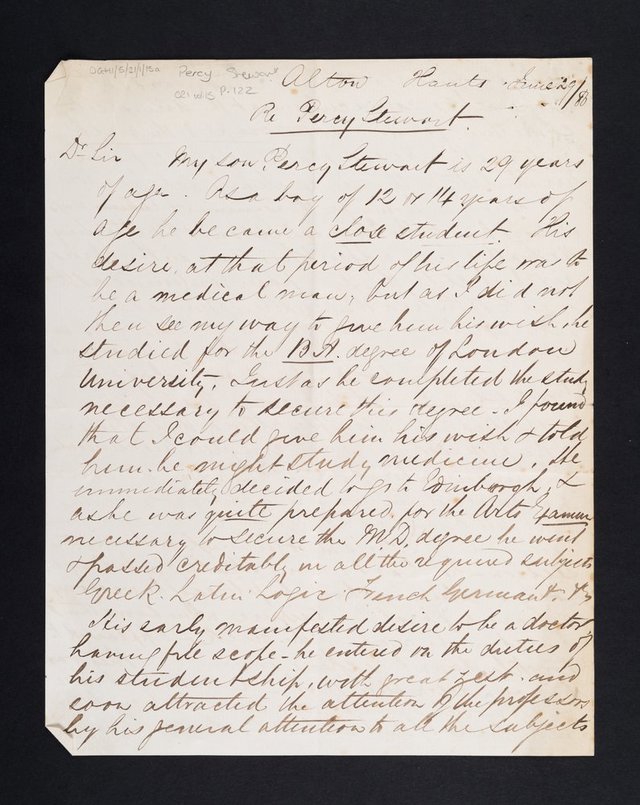 DGH1/5/21/1/15a Percy Stewart
C21 W15 P.122
Alton Hants June 29/88
Re Percy Stewart.
Dr Sir My son Percy Stewart is 29 years
of age. As a boy of 12 or 14 years of
age he became a close student. His
desire at that period of his life was to
be a medical man, but as I did not
then see my way to give him his wish he
studied for the BA. degree of London
University. Just as he completed the study
necessary to secure this degree - I found
that I could give him his wish & told
him he might study medicine. He
immediately decided to go to Edinburgh, &
as he was quite prepared for the Arts Exam
necessary to secure the M.D. degree he went
& passed creditably in all the required subjects
Greek Latin Logic French German &. &c
His early manifested desire to be a doctor
having free scope - he entered on the duties of
his studentship, with great zest. and
soon attracted the attention of the professors
by his general attention to all the subjects